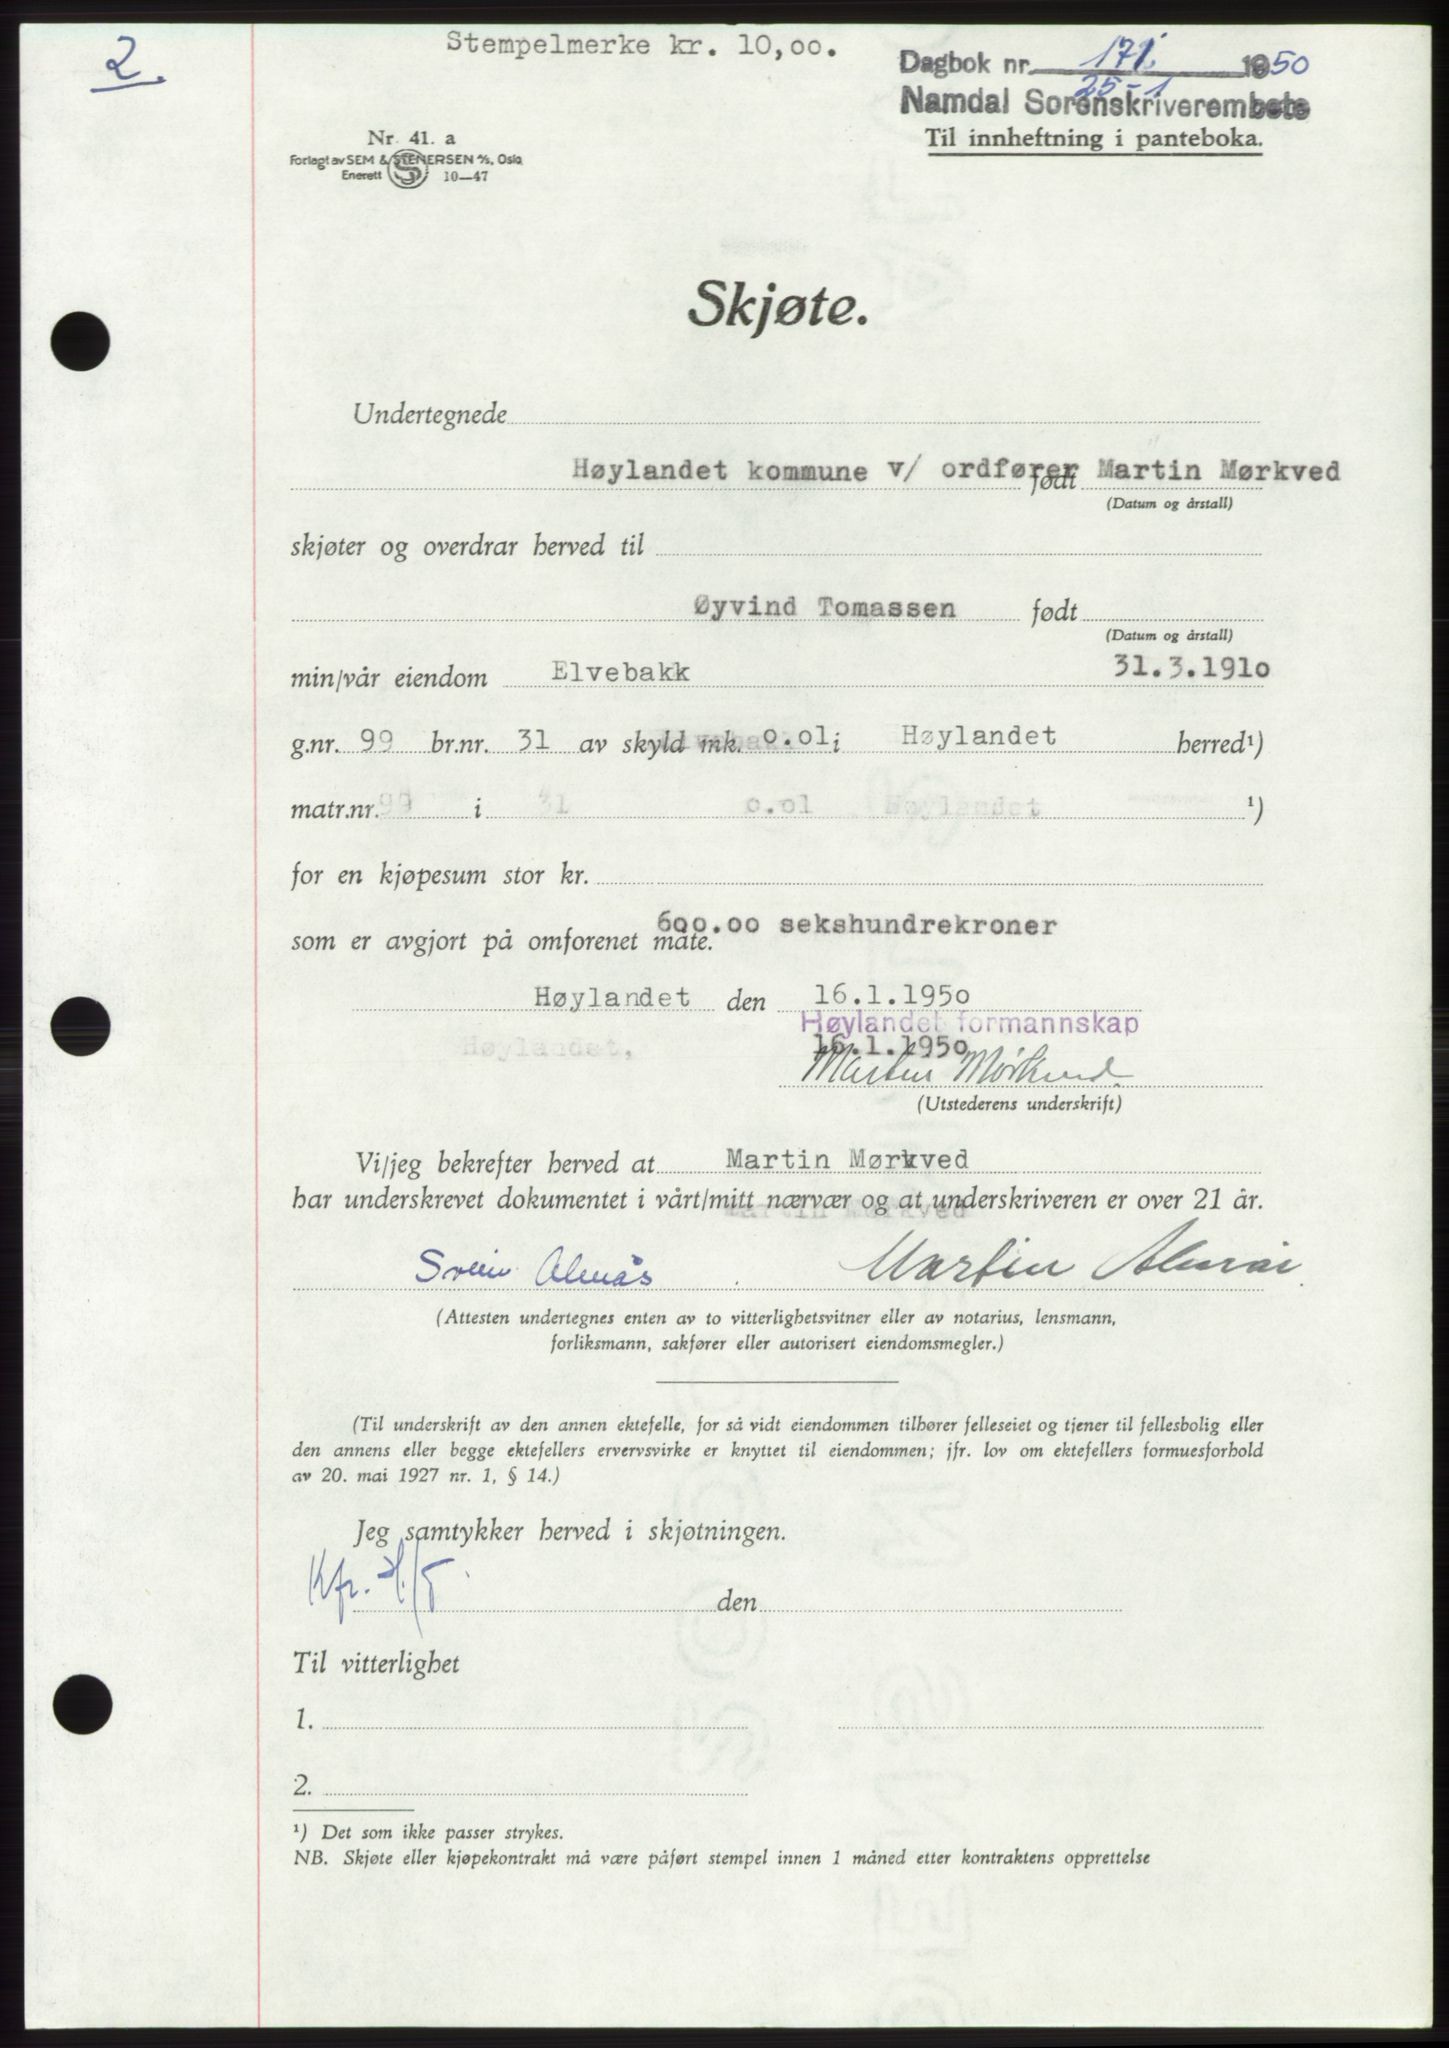 2.
Stempelmerke kr. 10,00.
Dagbok nr. 171. 1950
25-1
Namdal Sorenskriverembete
Til innheftning i panteboka.
Nr. 41. a
Forlagt av SEM & STENERSEN A/S, Oslo
Enerett 10—47
Skjøte.
Undertegnede
Høylandet kommune v/ ordfører Martin Mørkved
født
(Datum og årstall)
skjøter og overdrar herved til
Øyvind Tomassen født
(Datum og årstall)
min/vår eiendom Elvebakk 31.3.1910
g.nr. 99 br.nr. 31 av skyld mk. 0.01 i Høylandet herred¹)
matr.nr. 99 i 31 0.01 Høylandet ¹)
for en kjøpesum stor kr.
600.00 sekshundrekroner
som er avgjort på omforenet måte.
Høylandet den 16.1.1950
Høylandet formannskap
Høylandet, 16.1.1950
Martin Mørkved
(Utstederens underskrift)
Vi/jeg bekrefter herved at Martin Mørkved
har underskrevet dokumentet i vårt/mitt nærvær og at underskriveren er over 21 år.
Martin Mørkved
Svein Almås Martin Almås
(Attesten undertegnes enten av to vitterlighetsvitner eller av notarius, lensmann,
forliksmann, sakfører eller autorisert eiendomsmegler.)
(Til underskrift av den annen ektefelle, for så vidt eiendommen tilhører felleseiet og tjener til fellesbolig eller
den annens eller begge ektefellers ervervsvirke er knyttet til eiendommen; jfr. lov om ektefellers formuesforhold
av 20. mai 1927 nr. 1, § 14.)
Jeg samtykker herved i skjøtningen.
Kfr.
den
Til vitterlighet
1.
2.
¹) Det som ikke passer strykes.
NB. Skjøte eller kjøpekontrakt må være påført stempel innen 1 måned etter kontraktens opprettelse